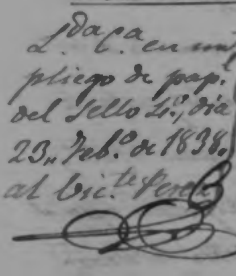 L.da C.a en un
pliego de pap.l
del Sello 4.o, dia
23,, Feb.o de 1838.
al Lic.te Perez